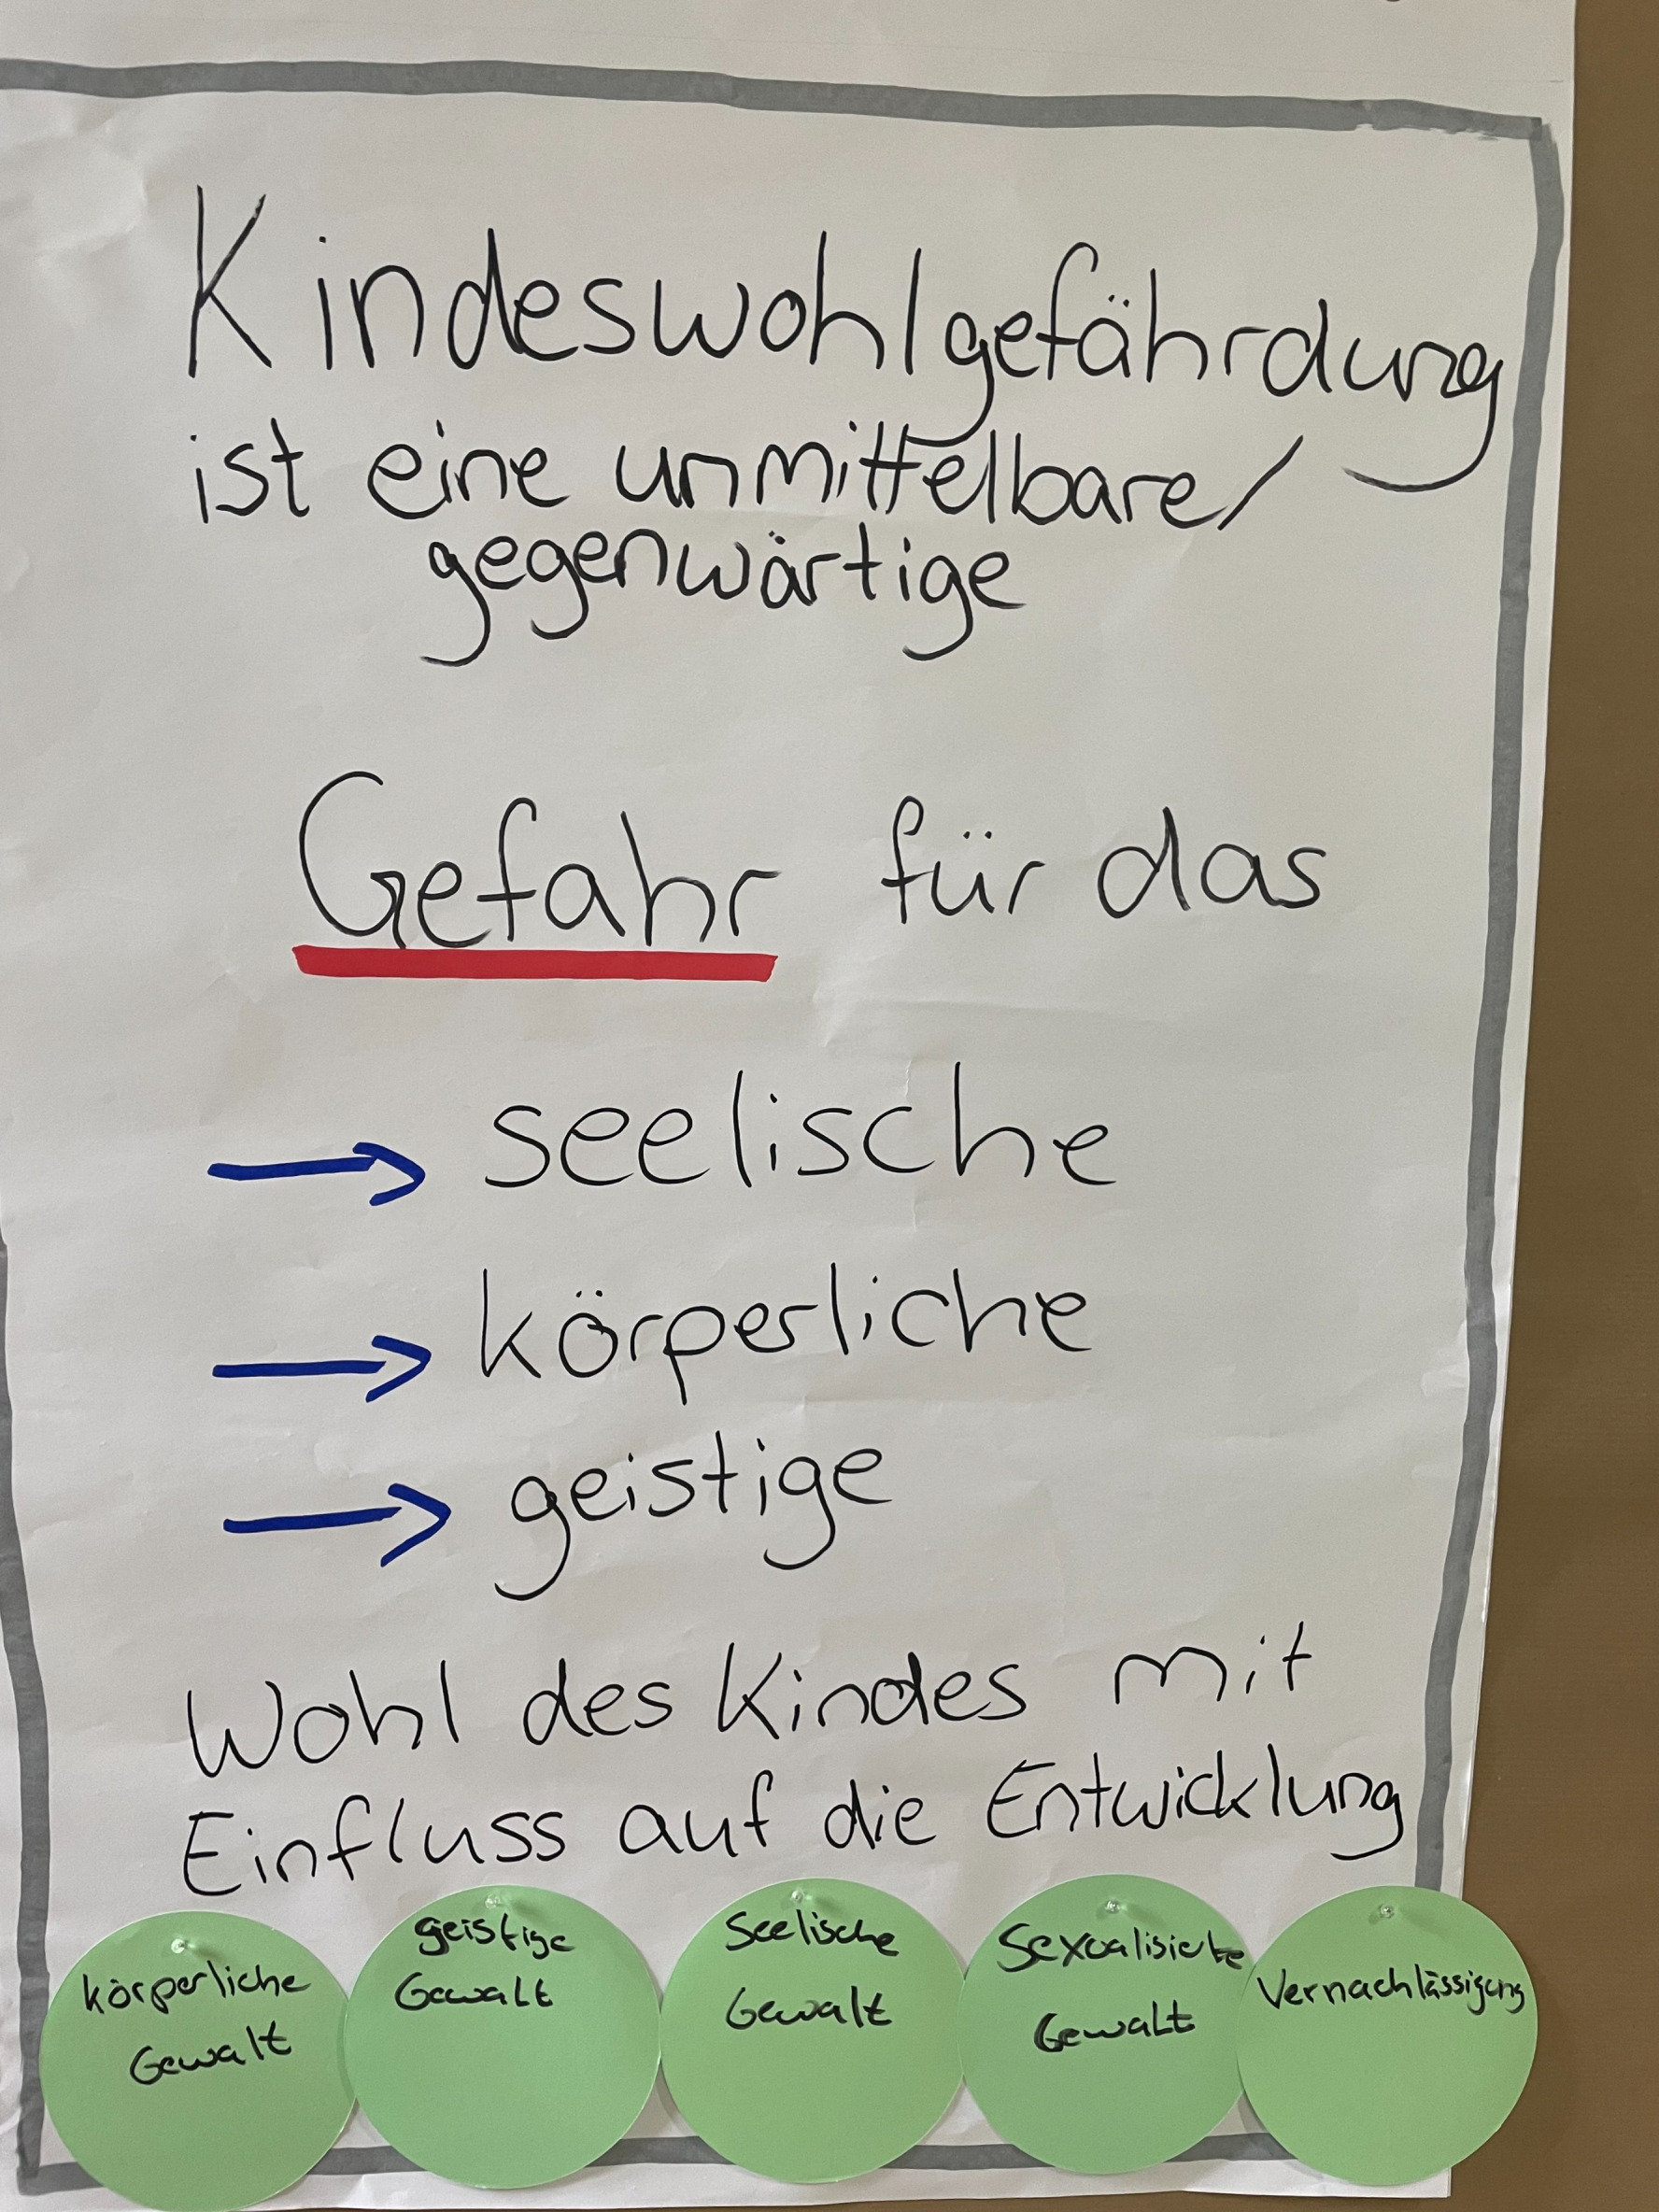 Kindeswohlgefährdung
ist eine unmittelbare/
gegenwärtige
Gefahr für das
→ seelische
→ körperliche
→ geistige
Wohl des Kindes mit
Einfluss auf die Entwicklung
körperliche
Gewalt
geistige
Gewalt
Seelische
Gewalt
Sexualisierte
Gewalt
Vernachlässigung